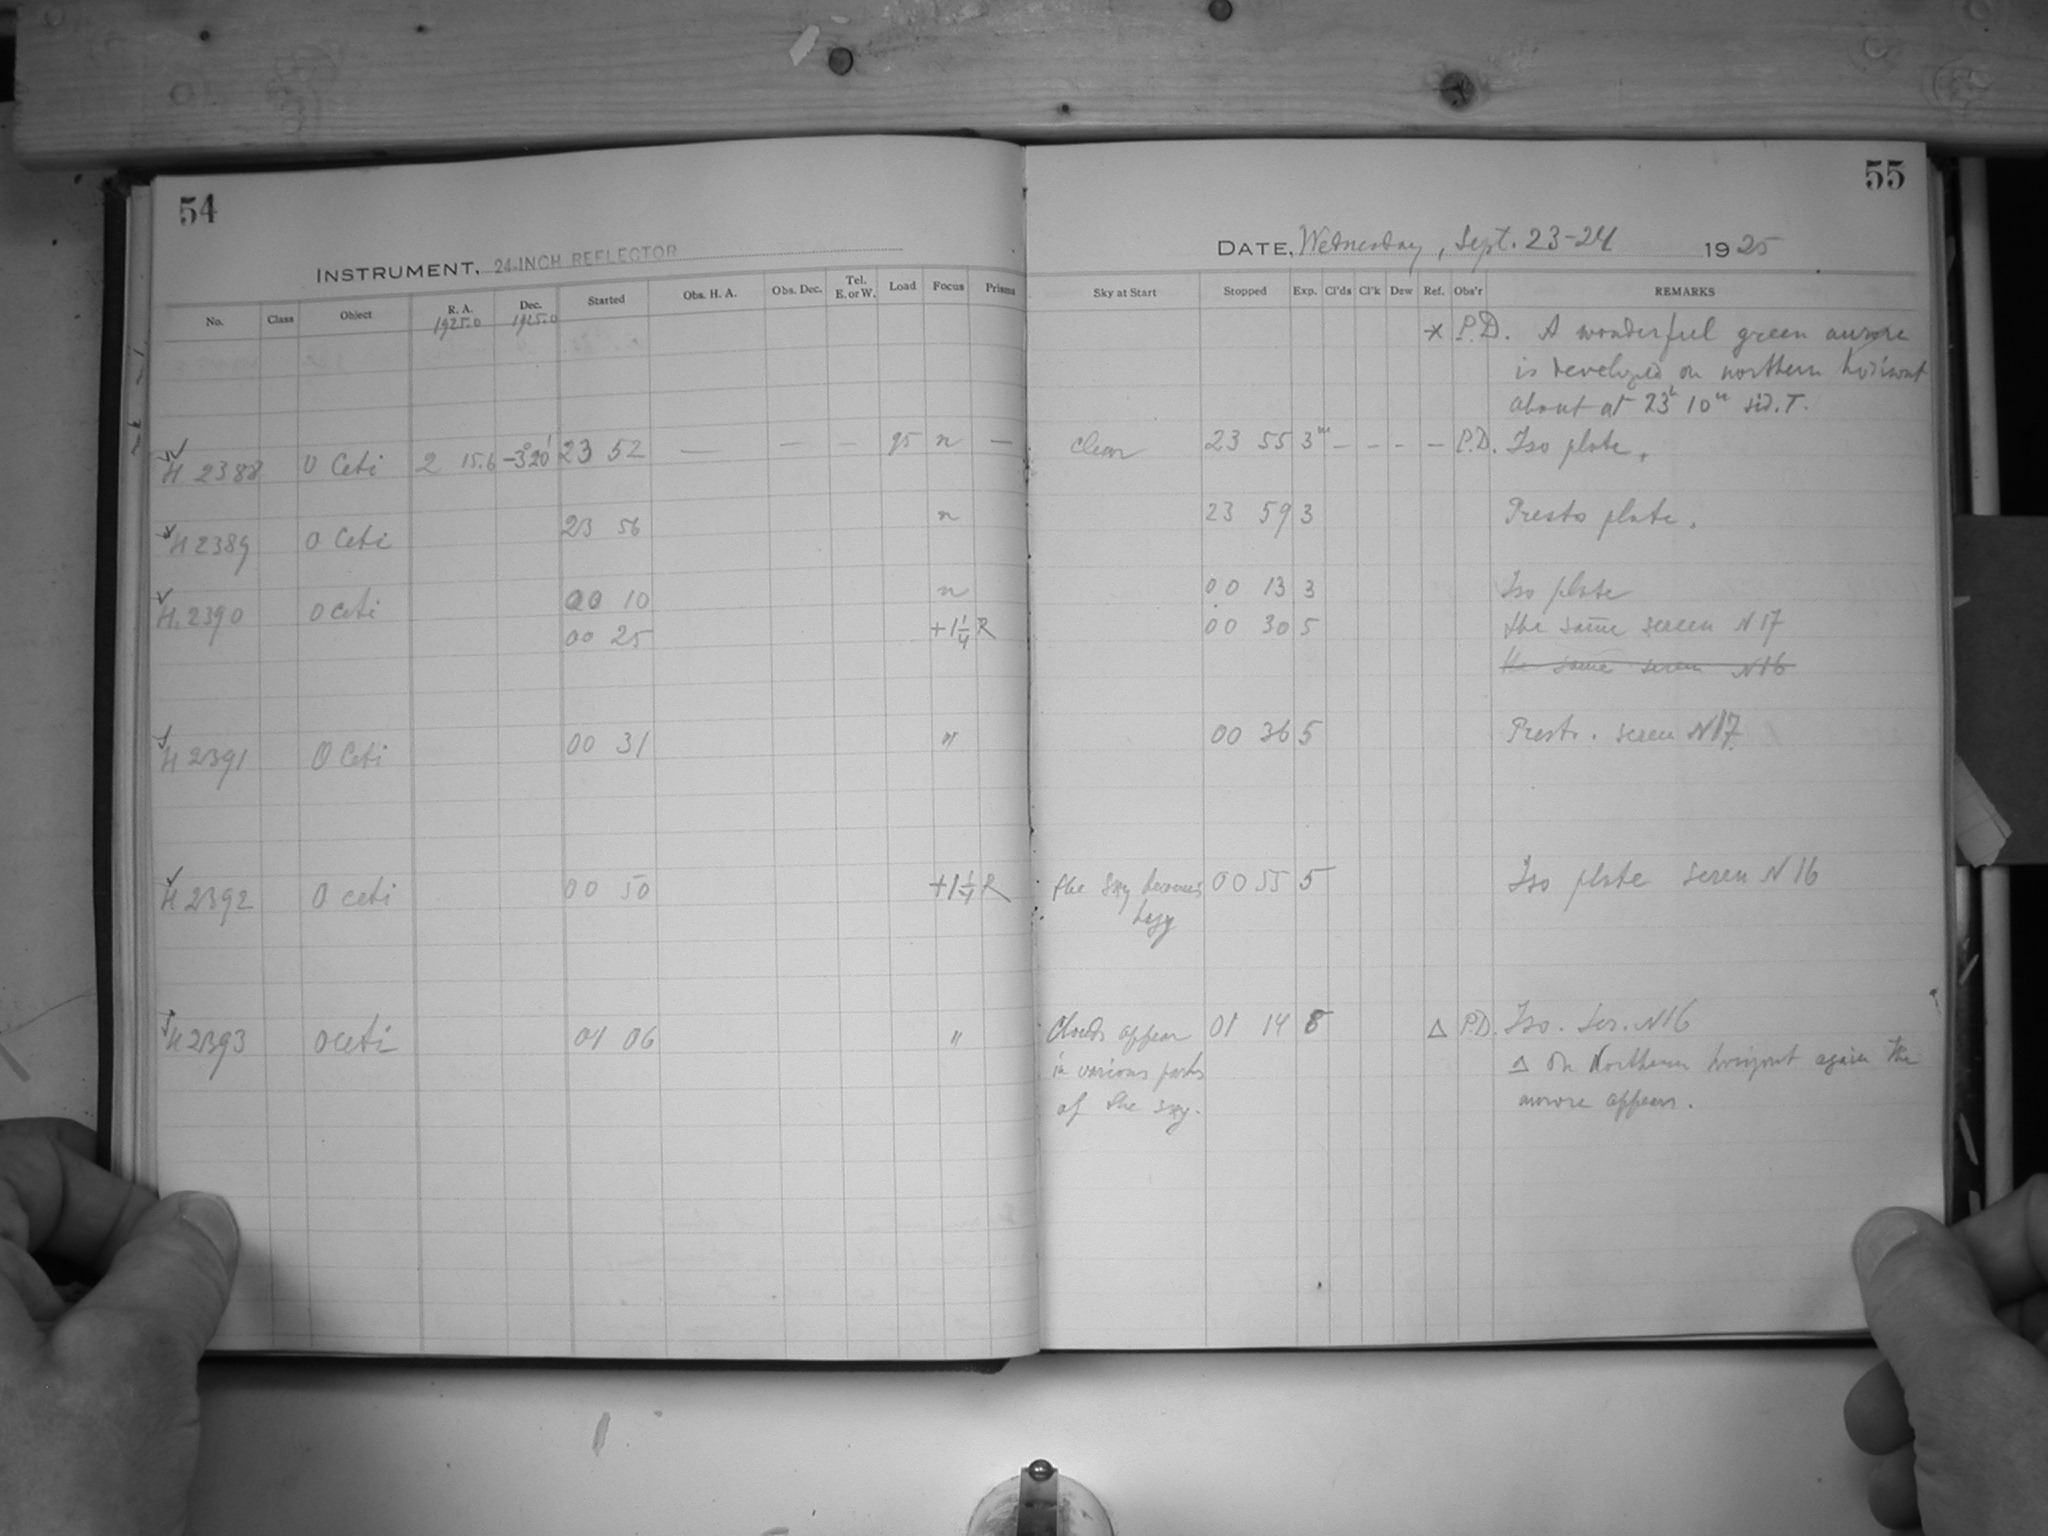 54
INSTRUMENT, 24-INCH REFLECTOR
No. Class Object R. A. 1925.0 Dec. 1925.0 Started Obs. H. A. Obs. Dec. Tel. E. or W. Load Focus Prisms
H 2388 o Ceti 2 15.6 -3°20' 23 52 — — — 95 n —
H 2389 o Ceti 23 56 n
H. 2390 o Ceti 00 10 n
00 25 +1 1/4 R
H 2391 o Ceti 00 31 "
H 2392 o ceti 00 50 +1 1/4 R
H 2393 o ceti 01 06 "
55
DATE, Wednesday, Sept. 23-24 1925
Sky at Start Stopped Exp. Cl'ds Cl'k Dew Ref. Obs'r REMARKS
× P.D. A wonderful green aurore
is developed on northern horisont
about at 23h 10m sid. T.
clear 23 55 3m - - - - P.D. Iso plate.
23 59 3 Presto plate.
00 13 3 Iso plate
00 30 5 the same screen N 17
the same screen N16
00 36 5 Presto. screen N17
the sky becomes 00 55 5 Iso plate screen N 16
hazy
Clouds appear 01 14 8 Δ P.D. Iso. Scr. N16
in various parts Δ On Northern horizont again the
of the sky. aurore appears.